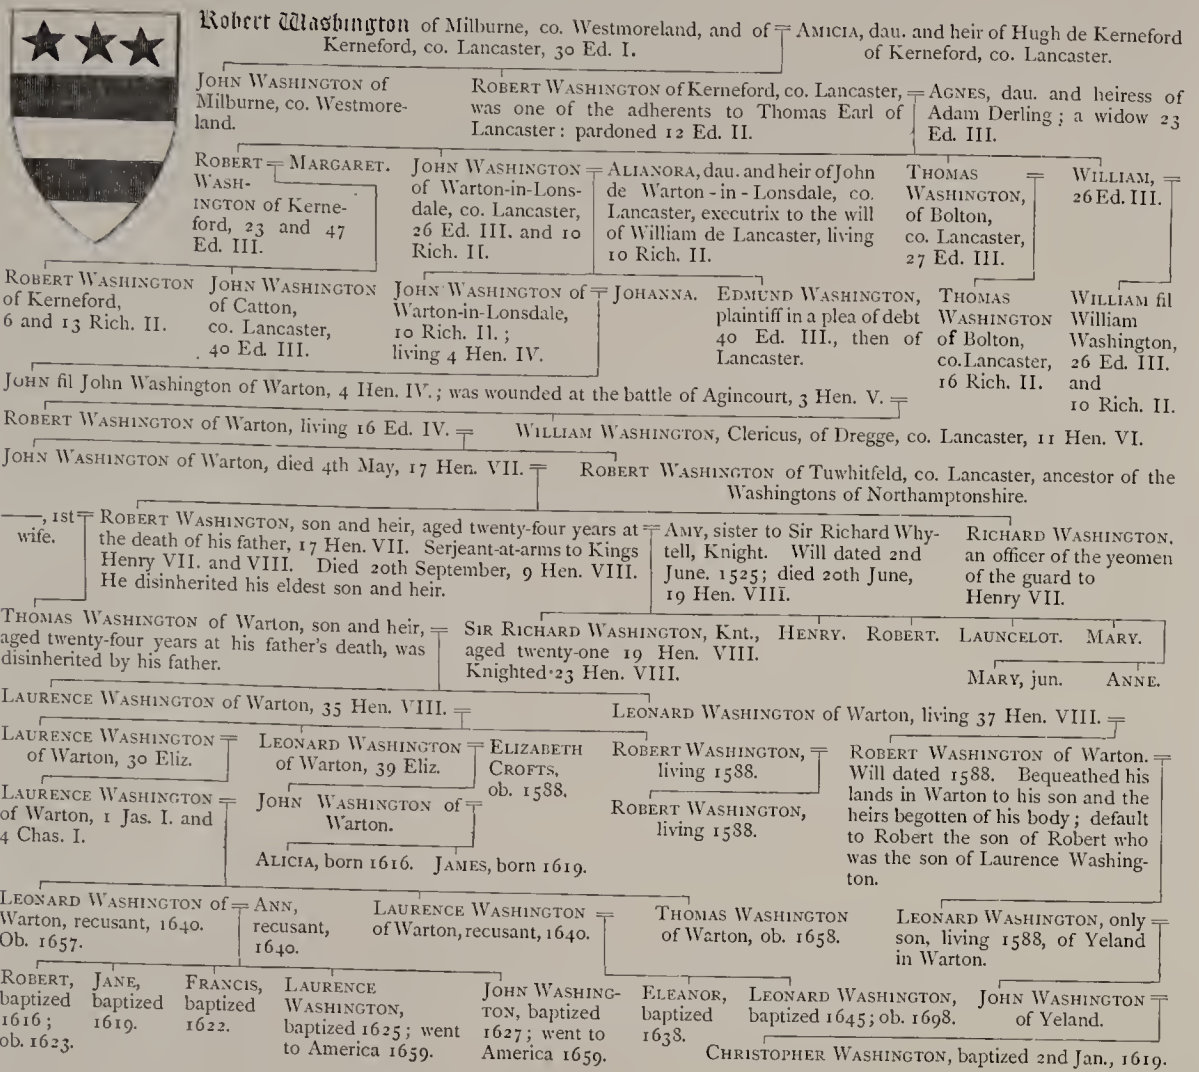 Robert Washington of Milburne, co. Westmoreland, and of
Kerneford, co. Lancaster, 30 Ed. I.
AMICIA, dau. and heir of Hugh de Kerneford
of Kerneford, co. Lancaster.
JOHN WASHINGTON of
Milburne, co. Westmore-
land.
ROBERT WASHINGTON of Kerneford, co. Lancaster,
was one of the adherents to Thomas Earl of
Lancaster: pardoned 12 Ed. II.
AGNES, dau. and heiress of
Adam Derling; a widow 23
Ed. III.
ROBERT
WASH-
INGTON of Kerne-
ford, 23 and 47
Ed. III.
MARGARET.
JOHN WASHINGTON
of Warton-in-Lons-
dale, co. Lancaster,
26 Ed. III. and 10
Rich. II.
ALIANORA, dau. and heir of John
de Warton-in-Lonsdale, co.
Lancaster, executrix to the will
of William de Lancaster, living
10 Rich. II.
THOMAS
WASHINGTON,
of Bolton,
co. Lancaster,
27 Ed. III.
WILLIAM,
26 Ed. III.
ROBERT WASHINGTON
of Kerneford,
6 and 13 Rich. II.
JOHN WASHINGTON
of Catton,
co. Lancaster,
40 Ed. III.
JOHN WASHINGTON of
Warton-in-Lonsdale,
10 Rich. II.;
living 4 Hen. IV.
JOHANNA.
EDMUND WASHINGTON,
plaintiff in a plea of debt
40 Ed. III., then of
Lancaster.
THOMAS
WASHINGTON
of Bolton,
co. Lancaster,
16 Rich. II.
WILLIAM fil
William
Washington,
26 Ed. III.
and
10 Rich. II.
JOHN fil John Washington of Warton, 4 Hen. IV.; was wounded at the battle of Agincourt, 3 Hen. V.
ROBERT WASHINGTON of Warton, living 16 Ed. IV.
WILLIAM WASHINGTON, Clericus, of Dregge, co. Lancaster, 11 Hen. VI.
JOHN WASHINGTON of Warton, died 4th May, 17 Hen. VII.
ROBERT WASHINGTON of Tuwhitfeld, co. Lancaster, ancestor of the
Washingtons of Northamptonshire.
——, 1st
wife.
ROBERT WASHINGTON, son and heir, aged twenty-four years at
the death of his father, 17 Hen. VII. Serjeant-at-arms to Kings
Henry VII. and VIII. Died 20th September, 9 Hen. VIII.
He disinherited his eldest son and heir.
AMY, sister to Sir Richard Why-
tell, Knight. Will dated 2nd
June. 1525; died 20th June,
19 Hen. VIII.
RICHARD WASHINGTON.
an officer of the yeomen
of the guard to
Henry VII.
THOMAS WASHINGTON of Warton, son and heir,
aged twenty-four years at his father's death, was
disinherited by his father.
SIR RICHARD WASHINGTON, Knt.,
aged twenty-one 19 Hen. VIII.
Knighted 23 Hen. VIII.
HENRY.
ROBERT.
LAUNCELOT.
MARY.
MARY, jun.
ANNE.
LAURENCE WASHINGTON of Warton, 35 Hen. VIII.
LEONARD WASHINGTON of Warton, living 37 Hen. VIII.
LAURENCE WASHINGTON
of Warton, 30 Eliz.
LEONARD WASHINGTON
of Warton, 39 Eliz.
ELIZABETH
CROFTS,
ob. 1588.
ROBERT WASHINGTON,
living 1588.
ROBERT WASHINGTON of Warton.
Will dated 1588. Bequeathed his
lands in Warton to his son and the
heirs begotten of his body; default
to Robert the son of Robert who
was the son of Laurence Washing-
ton.
LAURENCE WASHINGTON
of Warton, 1 Jas. I. and
4 Chas. I.
JOHN WASHINGTON of
Warton.
ROBERT WASHINGTON,
living 1588.
ALICIA, born 1616.
JAMES, born 1619.
LEONARD WASHINGTON of
Warton, recusant, 1640.
Ob. 1657.
ANN,
recusant,
1640.
LAURENCE WASHINGTON
of Warton, recusant, 1640.
THOMAS WASHINGTON
of Warton, ob. 1658.
LEONARD WASHINGTON, only
son, living 1588, of Yeland
in Warton.
ROBERT,
baptized
1616;
ob. 1623.
JANE,
baptized
1619.
FRANCIS,
baptized
1622.
LAURENCE
WASHINGTON,
baptized 1625; went
to America 1659.
JOHN WASHING-
TON, baptized
1627; went to
America 1659.
ELEANOR,
baptized
1638.
LEONARD WASHINGTON,
baptized 1645; ob. 1698.
JOHN WASHINGTON
of Yeland.
CHRISTOPHER WASHINGTON, baptized 2nd Jan., 1619.